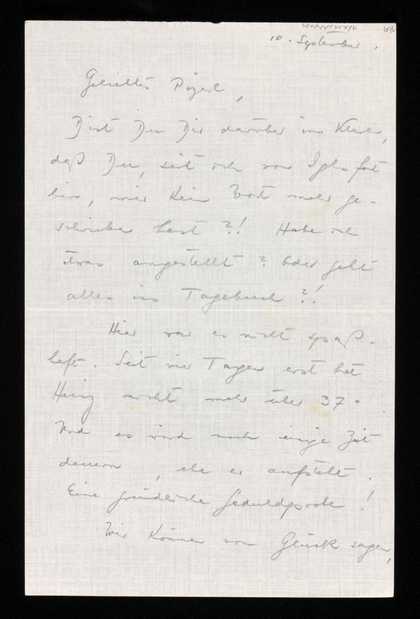 10. September.
Geliebtes Vögerl,
Bist Du Dir darüber im Klaren,
daß Du, seit ich von Igls fort
bin, mir kein Wort mehr ge-
schrieben hast ?! Habe ich
etwas angestellt? Oder geht
alles ins Tagebuch ?!
Hier war es nicht spaß-
haft. Seit vier Tagen erst hat
nicht mehr über 37°
Und es wird noch einige Zeit
dauern, ehe er aufsteht.
Eine gründliche Geduldprobe!
Wir können von Glück sagen,